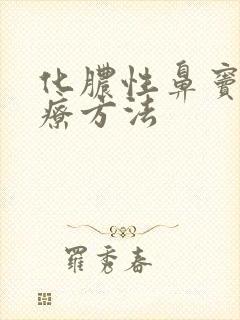 化膿性鼻竇
療方法
羅秀春